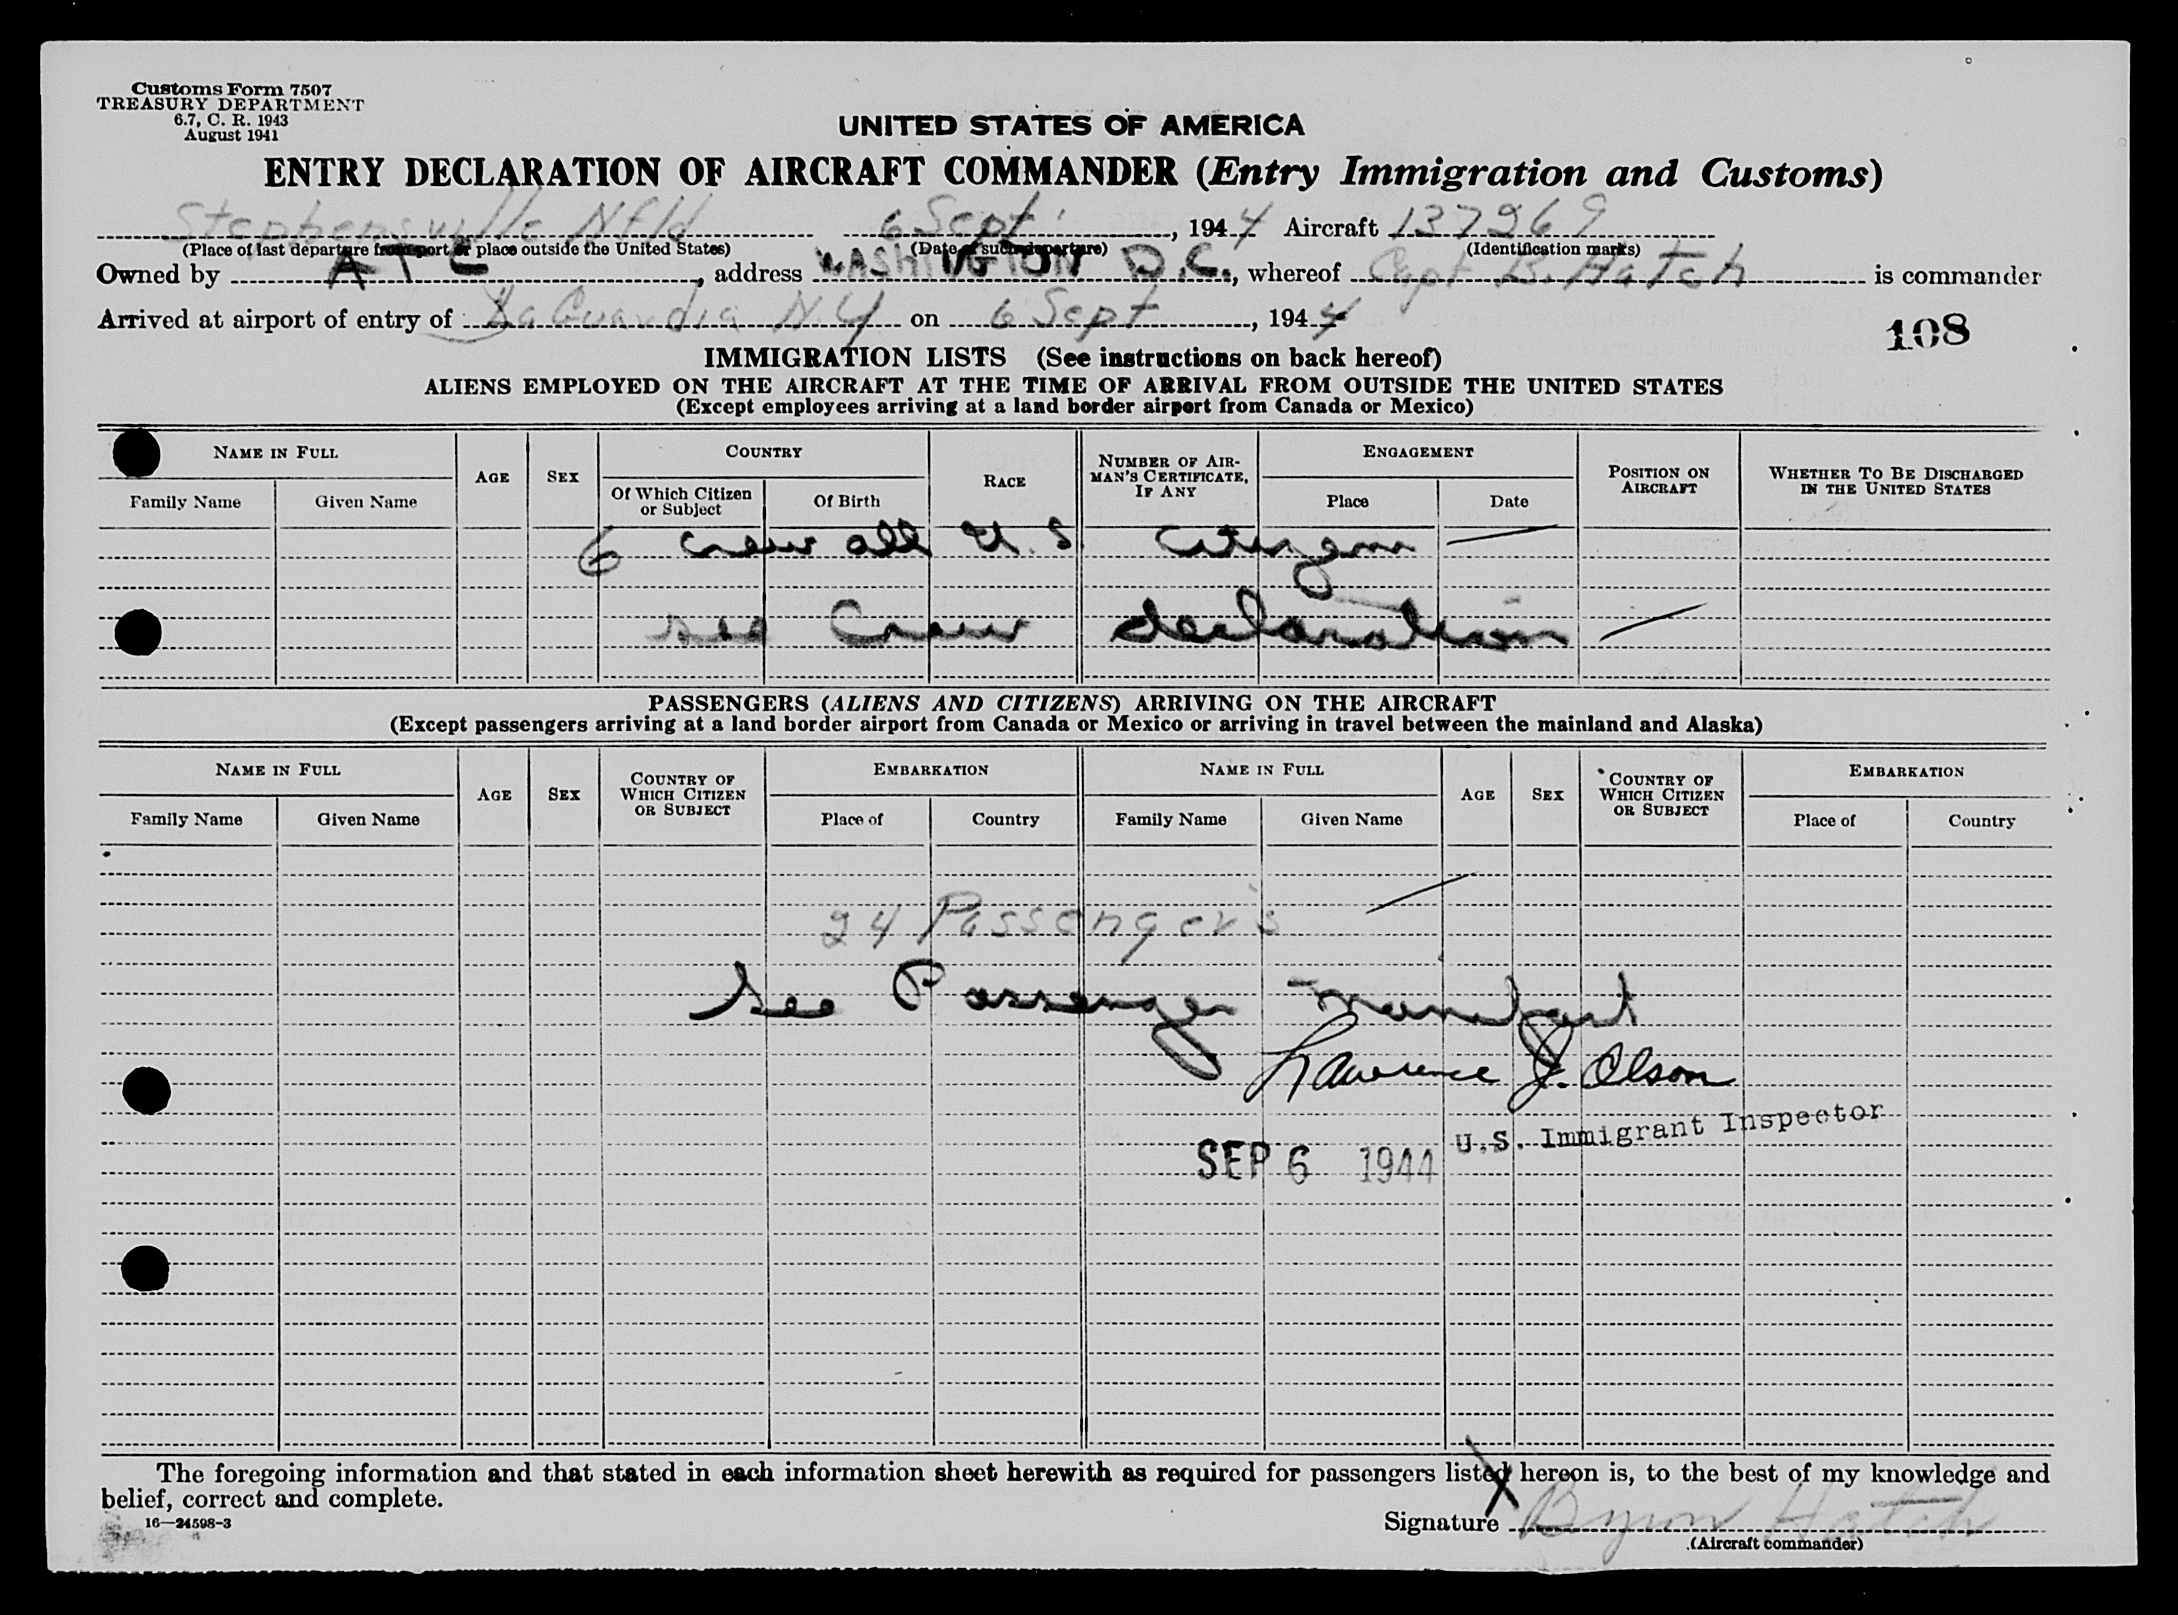 Customs Form 7507
TREASURY DEPARTMENT
6.7, C. R. 1943
August 1941
UNITED STATES OF AMERICA
ENTRY DECLARATION OF AIRCRAFT COMMANDER (Entry Immigration and Customs)
Stephensville Nfld 6 Sept., 1944 Aircraft 137969
(Place of last departure from port or place outside the United States) (Date of such departure) (Identification marks)
Owned by ATC, address WASHINGTON D.C., whereof Capt B. Hatch is commander
Arrived at airport of entry of LaGuardia N.Y on 6 Sept, 1944
108
IMMIGRATION LISTS (See instructions on back hereof)
ALIENS EMPLOYED ON THE AIRCRAFT AT THE TIME OF ARRIVAL FROM OUTSIDE THE UNITED STATES
(Except employees arriving at a land border airport from Canada or Mexico)
NAME IN FULL AGE SEX COUNTRY RACE NUMBER OF AIRMAN'S CERTIFICATE, IF ANY ENGAGEMENT POSITION ON AIRCRAFT WHETHER TO BE DISCHARGED IN THE UNITED STATES
Family Name Given Name Of Which Citizen or Subject Of Birth Place Date
6 crew all U.S. Citizens
see Crew declaration
PASSENGERS (ALIENS AND CITIZENS) ARRIVING ON THE AIRCRAFT
(Except passengers arriving at a land border airport from Canada or Mexico or arriving in travel between the mainland and Alaska)
NAME IN FULL AGE SEX COUNTRY OF WHICH CITIZEN OR SUBJECT EMBARKATION NAME IN FULL AGE SEX COUNTRY OF WHICH CITIZEN OR SUBJECT EMBARKATION
Family Name Given Name Place of Country Family Name Given Name Place of Country
24 Passengers
See Passenger manifest
Lawrence J. Olson
U.S. Immigrant Inspector
SEP 6 1944
The foregoing information and that stated in each information sheet herewith as required for passengers listed hereon is, to the best of my knowledge and
belief, correct and complete.
16—24598-3
Signature X Byron Hatch
(Aircraft commander)